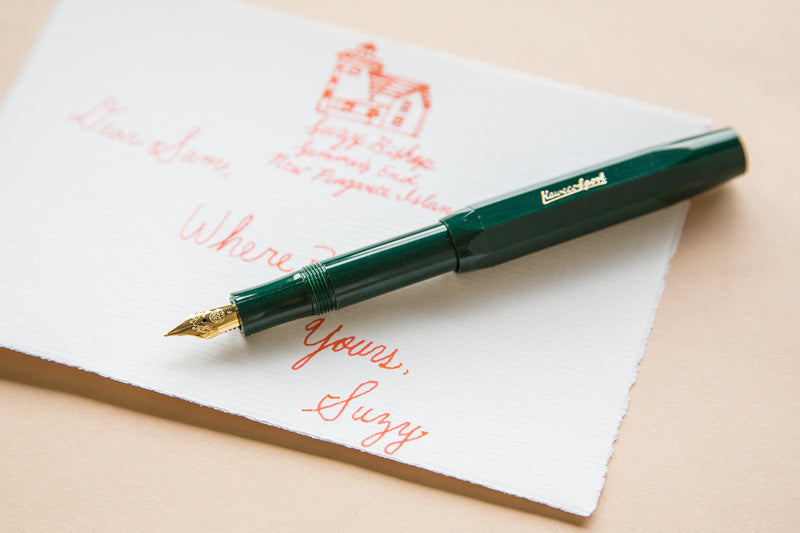 Suzy Bishop
Summer's End
New Penzance Island
Dear Sam,
Where
Yours,
Suzy
Kaweco Sport